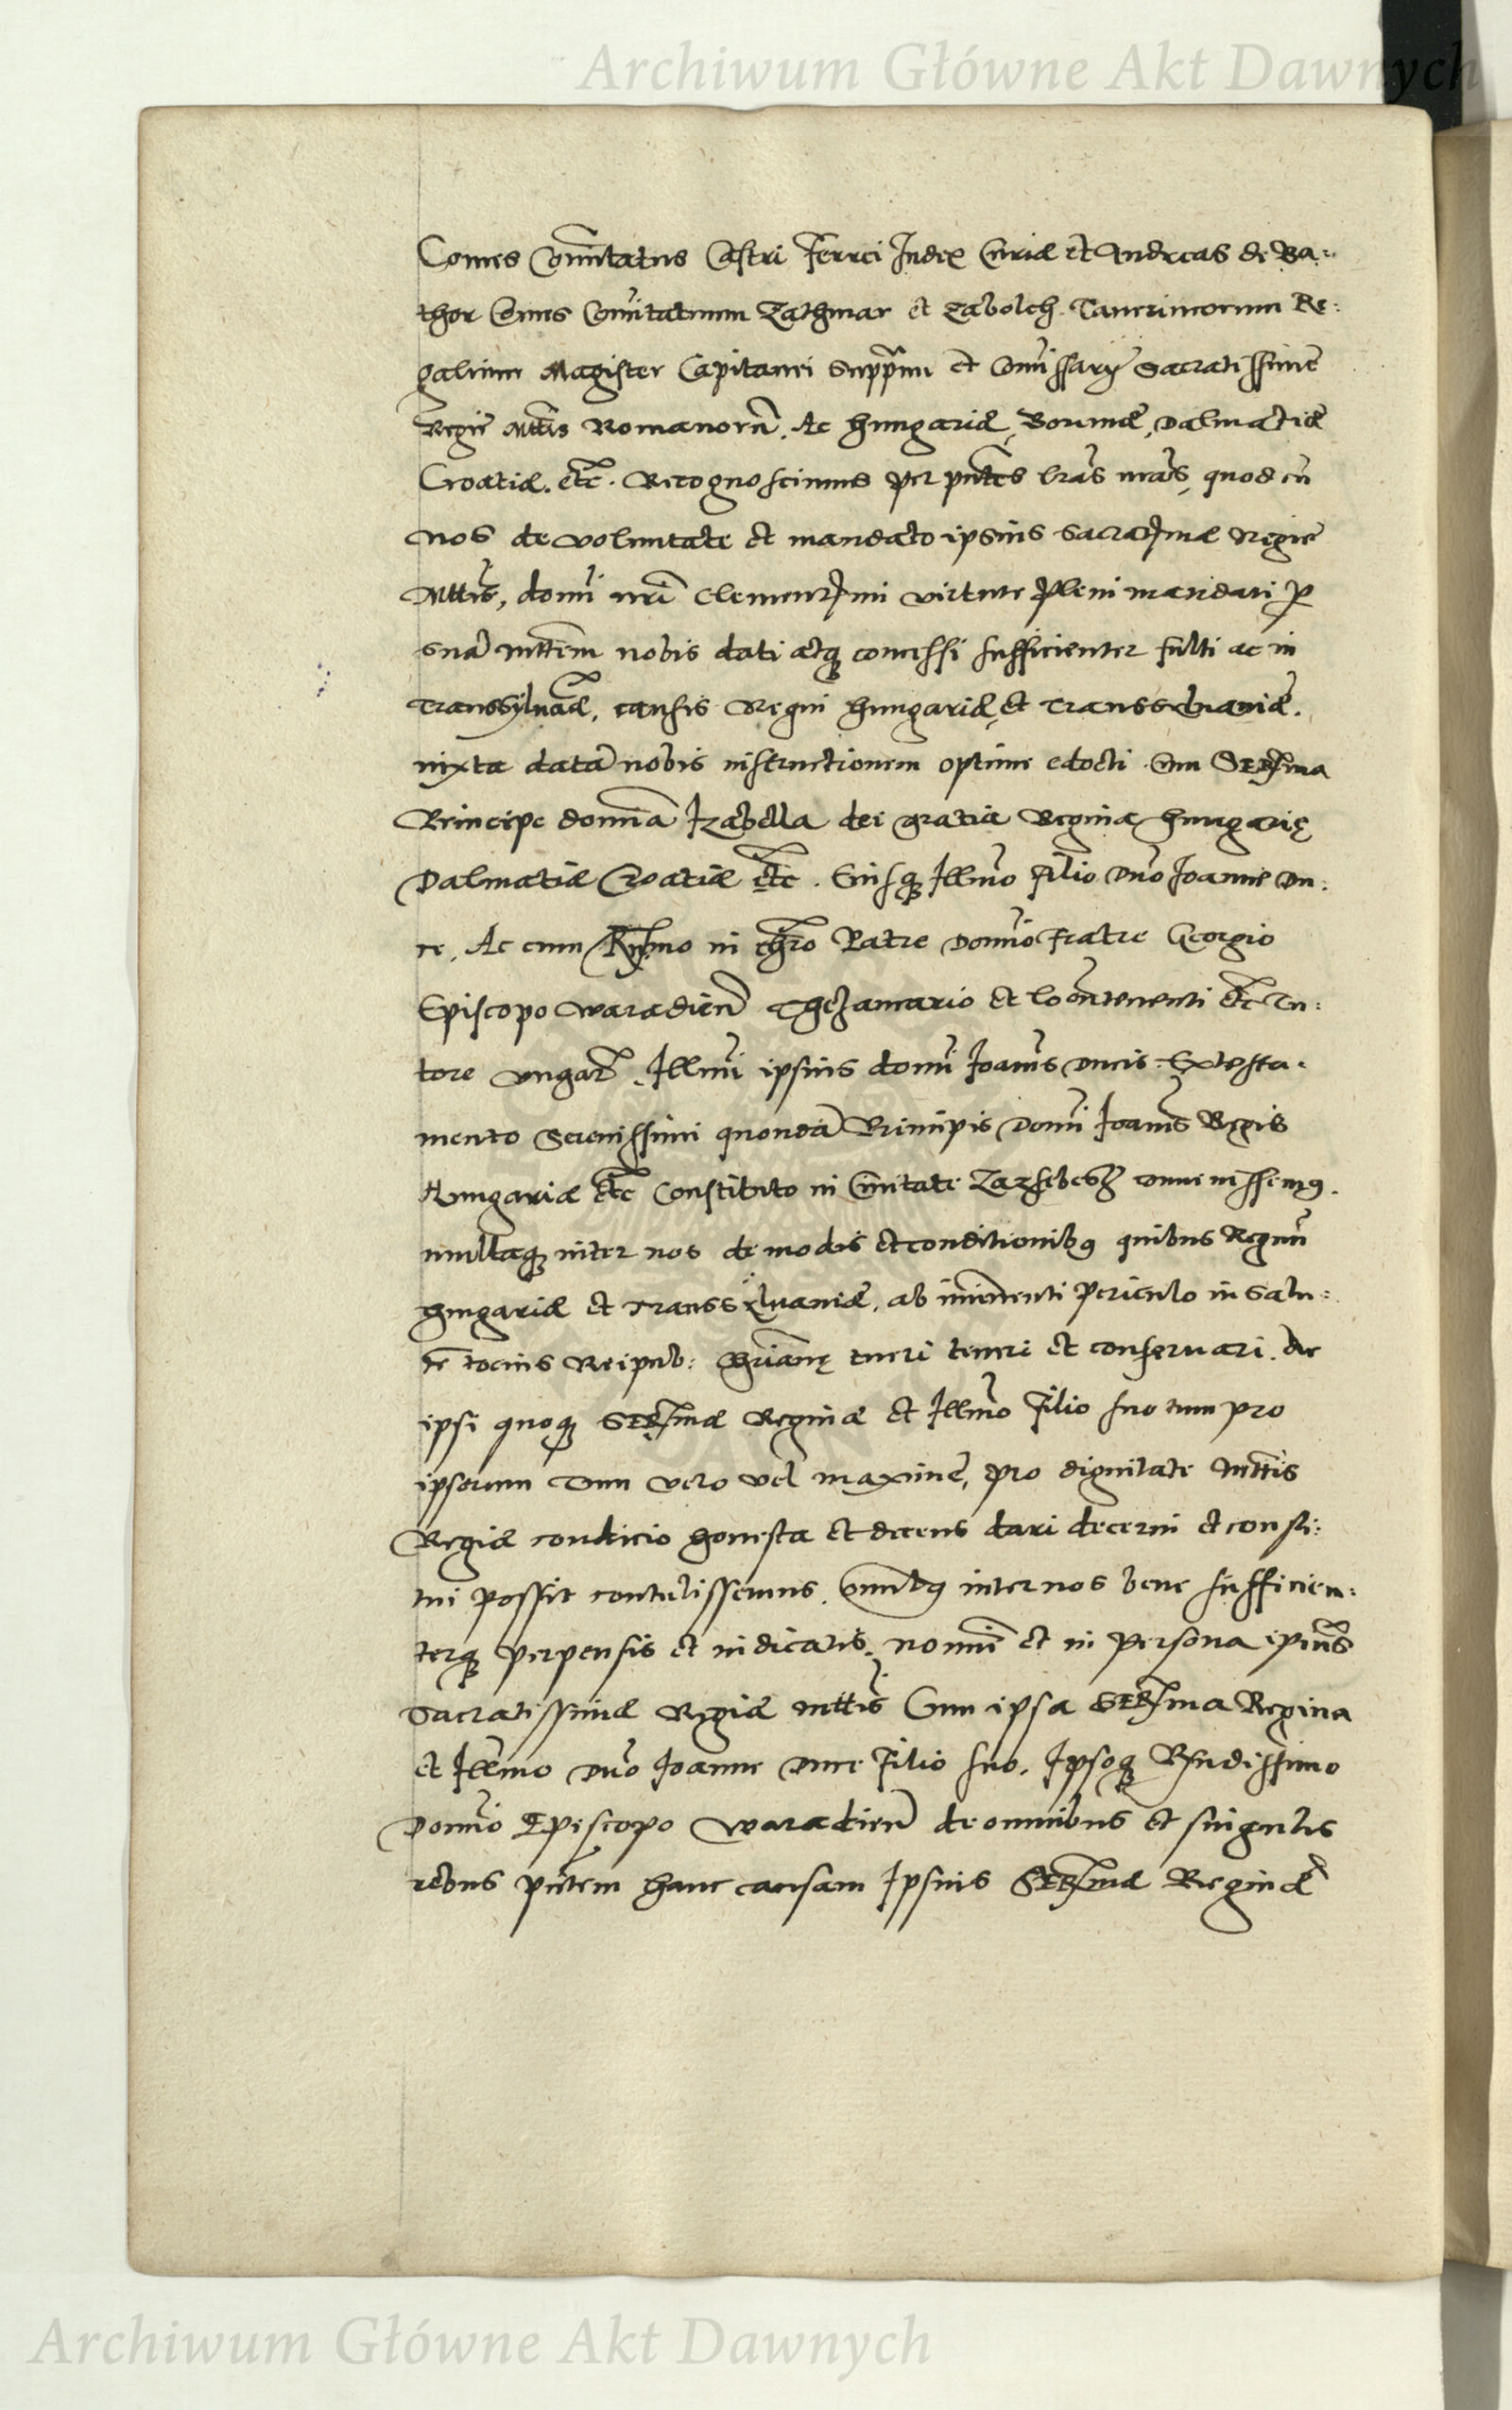 Archiwum Główne Akt Dawnych
Comes Comitatus Castri Ferrei Iudex Curiæ et Andreas de Ba:
thor Comes Comitatuum Zathmar et Zabolch Tauernicorum Re:
galium Magister Capitanei Suppremi et Comissarÿ Sacratissime
Regie Mttis Romanorū. Ac Hungariæ, Boemiæ, Dalmatiæ
Croatiæ. etc. Recognoscimus per pntes lrās nrās, quod cū
nos de voluntate et mandato ipsius Sacraᵗᵢmæ Regie
Mttis, domi nri Clementᵢmi virtute pleni mandati p
suā mttem nobis dati atq concessi sufficienter fulti ac in
Transsyluaniæ, causis Regni Hungariæ et Transsyluaniæ.
iuxta datā nobis instructionem optime edocti Cum Serᵢma
Principe domina Izabella dei gratia Regina Hungarię
Dalmatiæ Croatiæ etc. Eiusq Illmo Filio Dno Ioanne Du:
ce, Ac cum Rmo in chro Patre Domino Fratre Georgio
Episcopo Waradien Thezaurario et locumtenenti etc Tu:
tore Illmi ipsius domi Ioanis Ducis. Ex testa:
mento Serenissimi quondā Principis Domi Ioanis Regis
Hungariæ etc Constituto in Ciuitate Zazsebesz conuenissemus.
multaq inter nos de modis et conditionibus quibus Regnū
Hungariæ et Transsyluaniæ, ab iminenti periculo in salu:
tē tocius Reipub: Chrianę tueri teneri et conseruari. Ac
ipsi quoq Serᵢmæ Reginæ et Illmo Filio suo tum pro
ipsorum Tum vero vel maxime, pro dignitate Mttis
Regiæ condicio honesta et decens dari decerni et consti:
tui possit contulissemus. Omnibus inter nos bene sufficien:
terq perpensis et iudicatis. nomine et in persona ipsius
Sacratissimæ Regiæ mttis Cum ipsa Serᵢma Regina
et Illmo Dno Ioanne Duce Filio suo, Ipsoq Rndissimo
Domino Episcopo Waradien de omnibus et singulis
rebus pntem hanc causam Ipsius Serᵢmæ Reginæ
Archiwum Główne Akt Dawnych